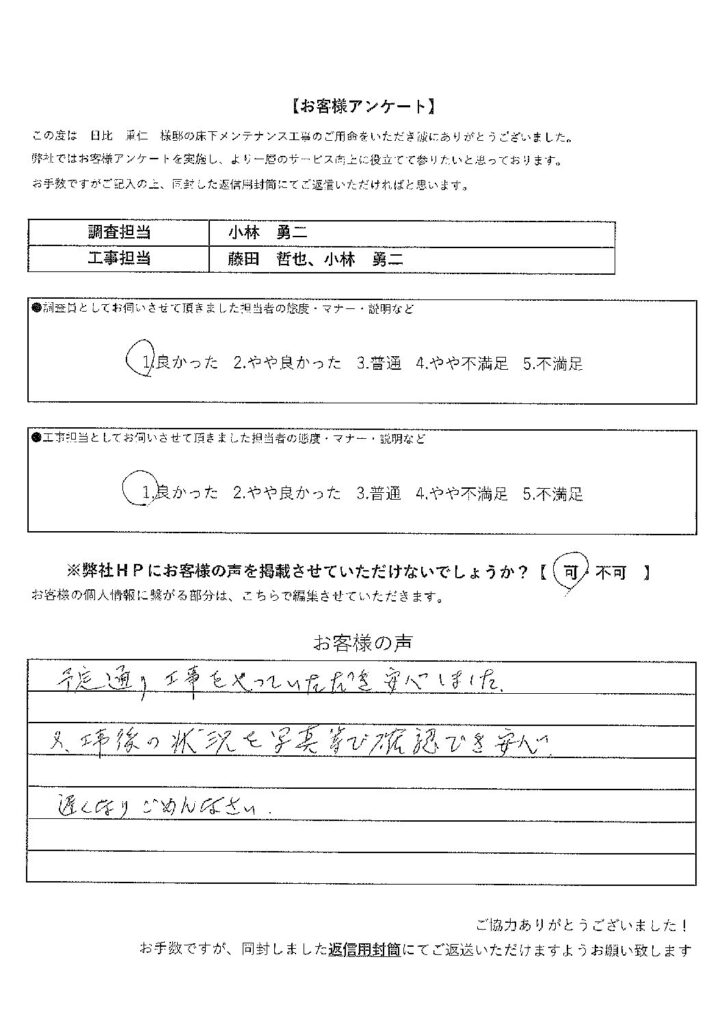 【お客様アンケート】
この度は 日比 重仁 様邸の床下メンテナンス工事のご用命をいただき誠にありがとうございました。
弊社ではお客様アンケートを実施し、より一層のサービス向上に役立てて参りたいと思っております。
お手数ですがご記入の上、同封した返信用封筒にてご返信いただければと思います。
調査担当 小林 勇二
工事担当 藤田 哲也、小林 勇二
●調査員としてお伺いさせて頂きました担当者の態度・マナー・説明など
1.良かった 2.やや良かった 3.普通 4.やや不満足 5.不満足
●工事担当としてお伺いさせて頂きました担当者の態度・マナー・説明など
1.良かった 2.やや良かった 3.普通 4.やや不満足 5.不満足
※弊社HPにお客様の声を掲載させていただけないでしょうか？【 可・不可 】
お客様の個人情報に繋がる部分は、こちらで編集させていただきます。
お客様の声
予定通り工事をやっていただき安心しました.
又、工事後の状況も写真等で確認でき安心.
遅くなりごめんなさい.
ご協力ありがとうございました！
お手数ですが、同封しました返信用封筒にてご返送いただけますようお願い致します